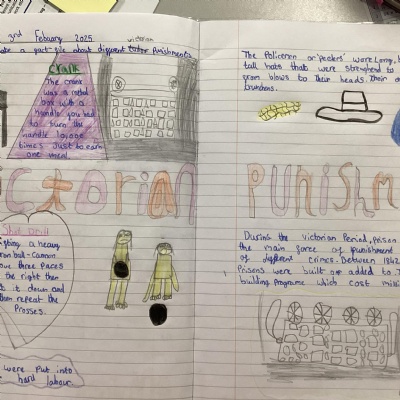 3rd Febuary 2025
victorian
ake a fact-file about different tudor Punishments
crank
The crank
was a metal
box with a
handle you had
to turn the
handle 10,000
times Just to earn
one meal
The Policemen or 'peelers' wore Long,
tall hats that were strengthend to
from blows to their heads. Their
truncheons.
ictorian Punishm
Shot Drill
ifting a heavy
ron ball-cannon
ove three Paces
the right then
it down and
then repeat the
Prosses.
were Put into
hard labour.
During the victorian Period, Prison
the main force of punishment
of different crimes. Between 1842
Prisons were built or added to.
building Programe which cost milli